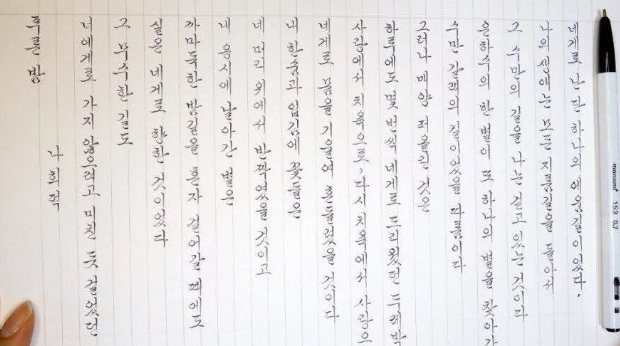 푸른 밤
나희덕
너에게로 가지 않으려고 미친 듯 걸었던
그 무수한 길도
실은 네게로 향한 것이었다
까마득한 밤길을 혼자 걸어갈 때에도
내 응시에 날아간 별은
네 머리 위에서 반짝였을 것이고
내 한숨과 입김에 꽃들은
네게로 몸을 기울여 흔들렸을 것이다
사랑에서 치욕으로, 다시 치욕에서 사랑으
하루에도 몇 번씩 네게로 드리웠던 두레박
그러나 매양 퍼올린 것은
수만 갈래의 길이었을 따름이다
은하수의 한 별이 또 하나의 별을 찾아가
그 수만의 길을 나는 걷고 있는 것이다
나의 생애는 모든 지름길을 돌아서
네게로 난 단 하나의 에움길이었다.
monami 153 0.7